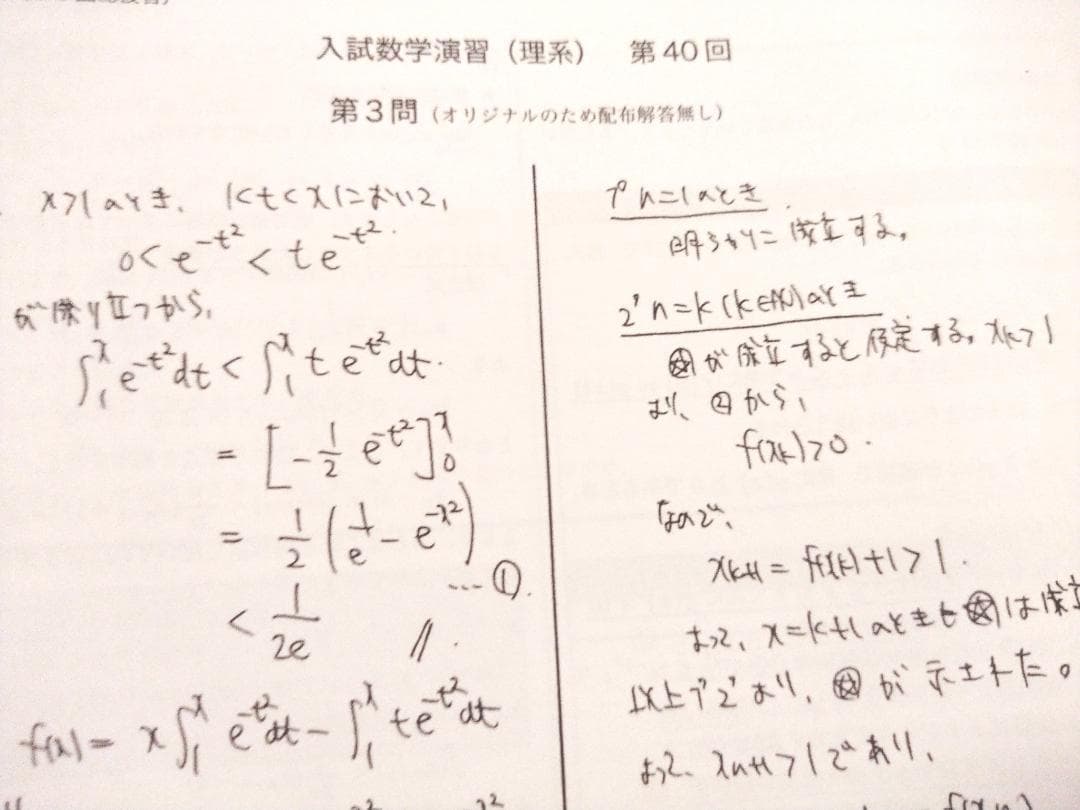 入試数学演習（理系） 第40回
第3問（オリジナルのため配布解答無し）
x>1のとき、1<t<xにおいて、
0 < e^{-t^2} < te^{-t^2}.
が成り立つから、
∫_1^x e^{-t^2}dt < ∫_1^x te^{-t^2}dt.
= [-1/2 e^{-t^2}]_0^x
= 1/2 (1/e - e^{-x^2})
…①.
< 1/2e //.
f(x) = x∫_1^x e^{-t^2}dt - ∫_1^x te^{-t^2}dt
1° n=1のとき.
明らかに成立する。
2° n=k(k∈N)のとき
☆が成立すると仮定する。x_k>1
より、②から、
f(x_k)>0.
なので、
x_{k+1} = f(x_k)+1>1.
よって、x=k+1のときも☆は成立
以上1°2°より、☆が示された。
よって、x_{n+1}>1であり、
f(x_n)